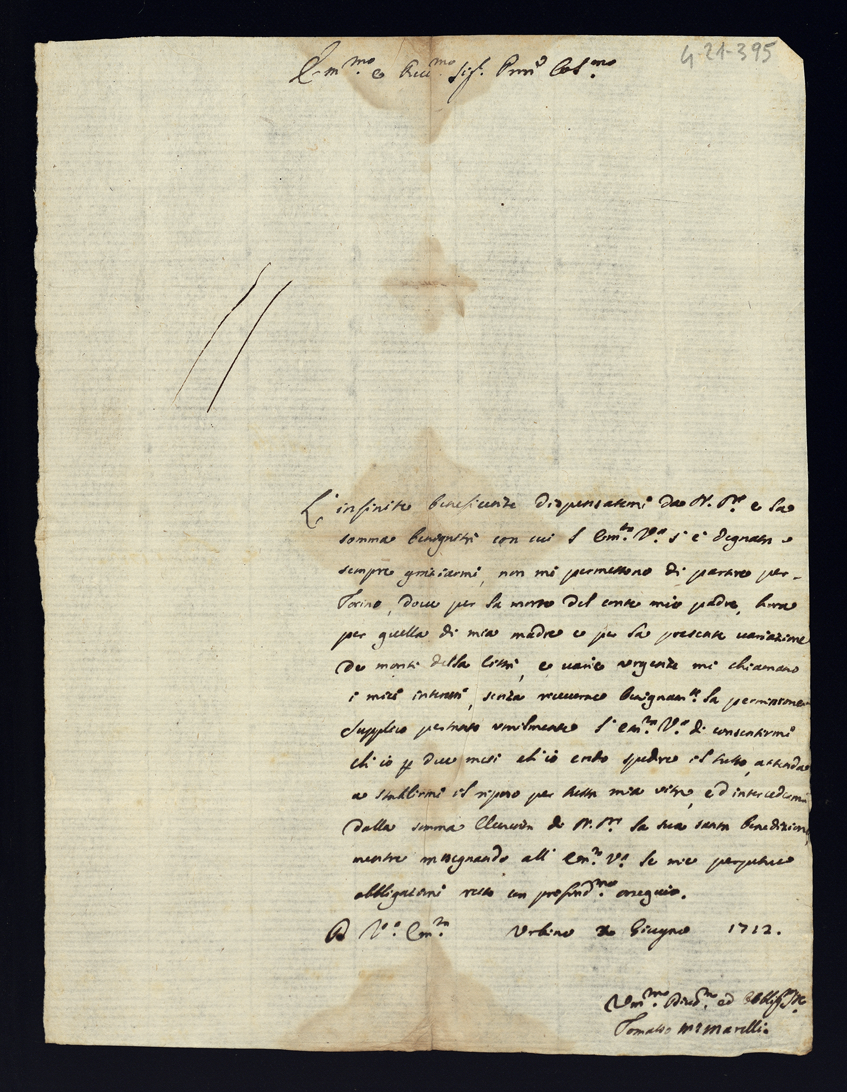 4-21-395
Em.mo e Rev.mo Sig. Pron Col.mo
L'infinite beneficenze dispensatemi da N. S.re e la
somma benignità con cui l'Em.za V.a si è degnata
sempre graziarmi, non mi permettono di partire per
Torino, dove per la morte del conte mio padre, hora
per quella di mia madre e per la presente variazione
de monti della Città, e varie urgenze mi chiamano
i miei interessi, senza riceverne benignam.te la permissione
Supplico pertanto umilmente l'Em.za V.a di consentirmi
ch'io p due mesi ch'io credo spedire il tutto, attenda
a stabilirmi il riposo per tutta mia vita, ed intercedermi
dalla somma Clemenza di N. S.re la sua santa benedizione
mentre rassegnando all'Em.za V.a le mie perpetue
obbligazioni resto con profond.mo ossequio.
D V.a Em.za Urbino Giugno 1712.
Um.mo Div.mo ed Obblig.
Tomaso Marelli